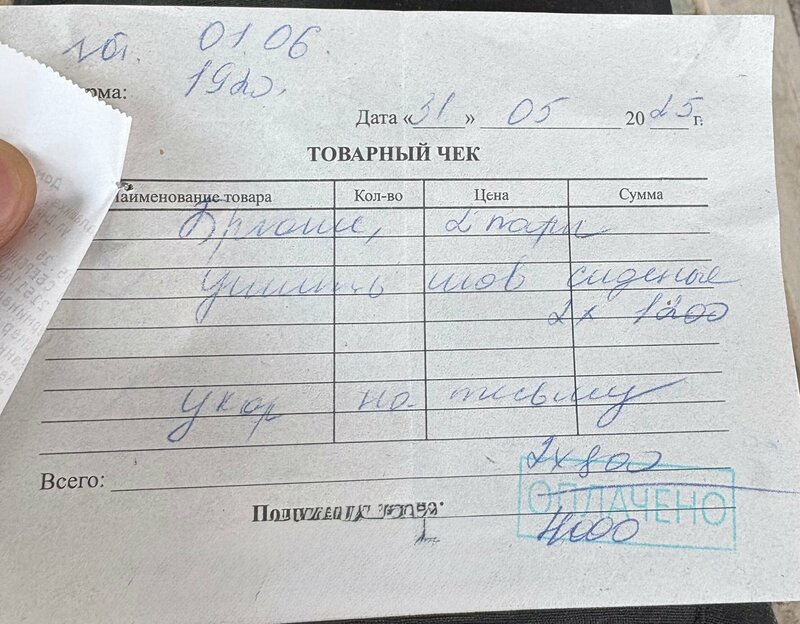 гот. 01.06.
рма: 19 20.
Дата «31» 05 2025 г.
ТОВАРНЫЙ ЧЕК
Наименование товара Кол-во Цена Сумма
Брюки, 2 пары
Ушить шов сиденье
2х 1200
Укор на тесьму
2х800
Всего:
ОПЛАЧЕНО
4000